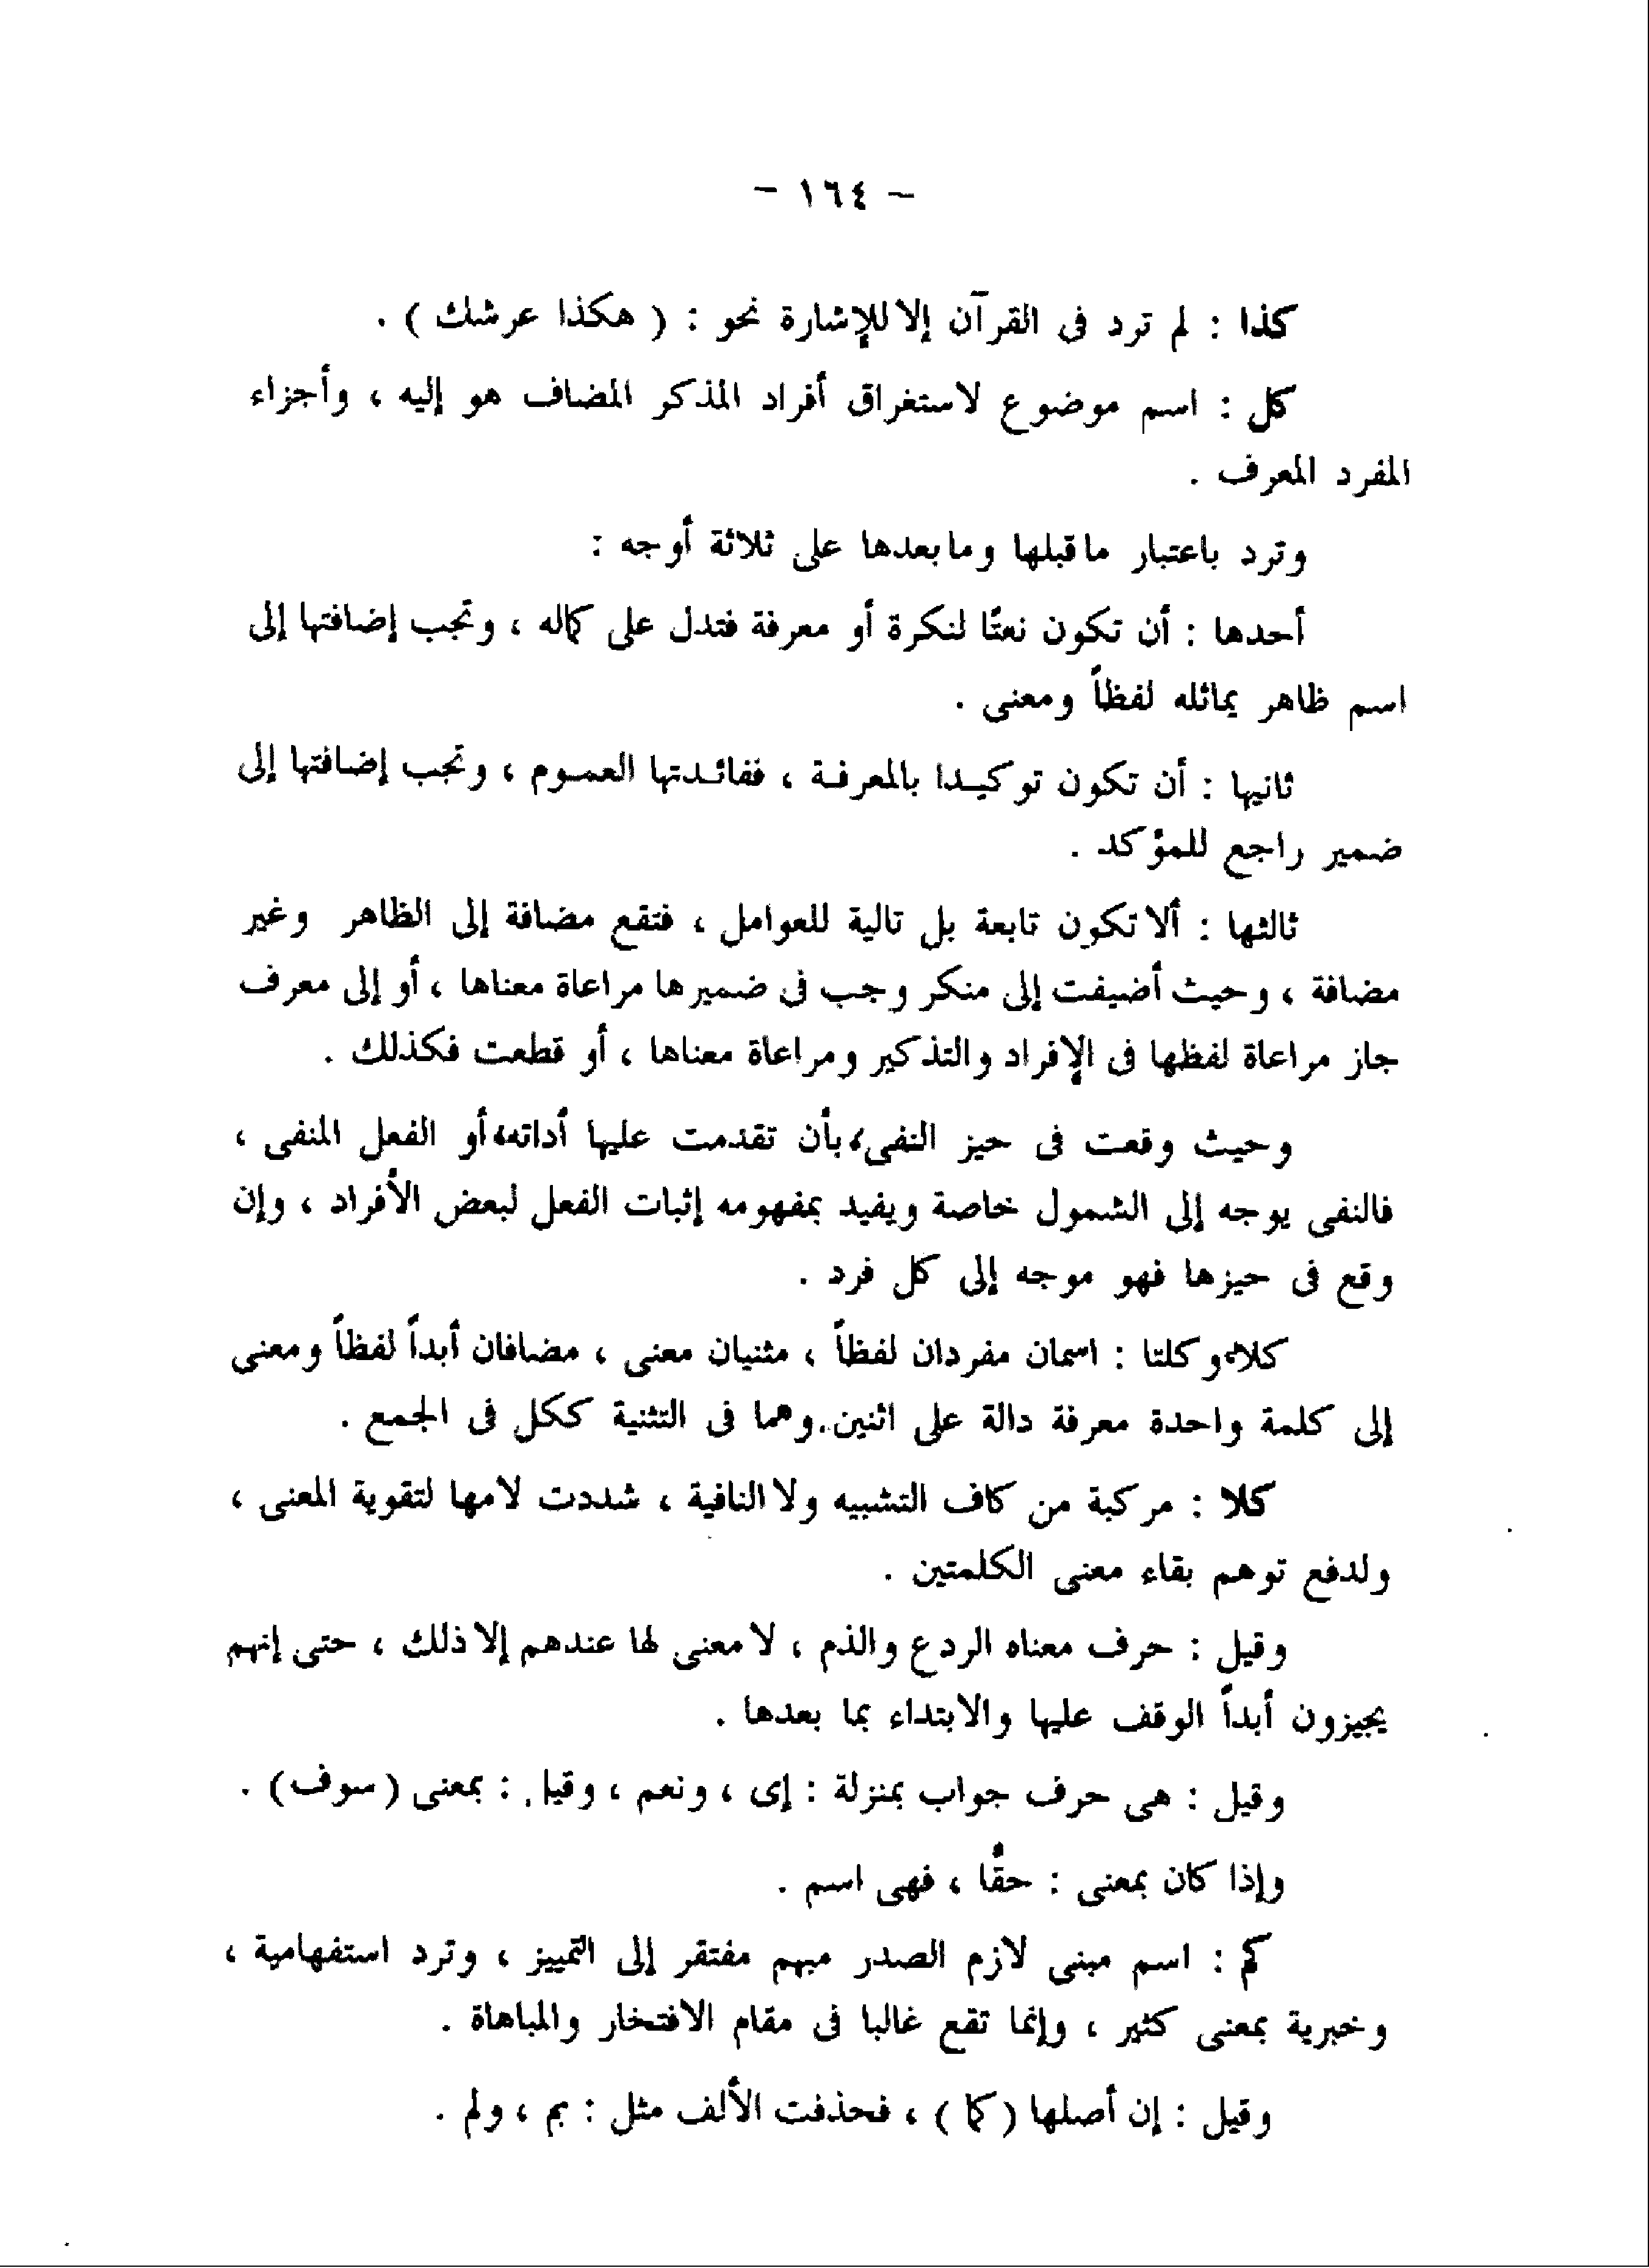 - ١٦٤ -
كذا : لم ترد فى القرآن إلا للإشارة نحو : ( هكذا عرشك ) .
كل : اسم موضوع لاستغراق أفراد المذكر المضاف هو إليه ، وأجزاء
المفرد المعرف .
وترد باعتبار ماقبلها ومابعدها على ثلاثة أوجه :
أحدها : أن تكون نعتًا لنكرة أو معرفة فتدل على كماله ، وتجب إضافتها إلى
اسم ظاهر يماثله لفظاً ومعنى .
ثانيها : أن تكون توكيـدا بالمعرفـة ، ففائـدتها العمـوم ، وتجب إضافتها إلى
ضمير راجع للمؤكد .
ثالثها : ألا تكون تابعة بل تالية للعوامل ، فتقع مضافة إلى الظاهر وغير
مضافة ، وحيث أضيفت إلى منكر وجب فى ضميرها مراعاة معناها ، أو إلى معرف
جاز مراعاة لفظها فى الإفراد والتذكير ومراعاة معناها ، أو قطعت فكذلك .
وحيث وقعت فى حيز النفى ، بأن تقدمت عليها أداته ، أو الفعل المنفى ،
فالنفى يوجه إلى الشمول خاصة ويفيد بمفهومه إثبات الفعل لبعض الأفراد ، وإن
وقع فى حيزها فهو موجه إلى كل فرد .
كلا ، وكلتا : اسمان مفردان لفظاً ، مثنيان معنى ، مضافان أبداً لفظاً ومعنى
إلى كلمة واحدة معرفة دالة على اثنين . وهما فى التثنية ككل فى الجمع .
كلا : مركبة من كاف التشبيه ولا النافية ، شددت لامها لتقوية المعنى ،
ولدفع توهم بقاء معنى الكلمتين .
وقيل : حرف معناه الردع والذم ، لا معنى لها عندهم إلا ذلك ، حتى إنهم
يجيزون أبداً الوقف عليها والابتداء بما بعدها .
وقيل : هى حرف جواب بمنزلة : إى ، ونعم ، وقيل : بمعنى ( سوف ) .
وإذا كان بمعنى : حقًا ، فهى اسم .
كم : اسم مبنى لازم الصدر مبهم مفتقر إلى التمييز ، وترد استفهامية ،
وخبرية بمعنى كثير ، وإنما تقع غالبا فى مقام الافتخار والمباهاة .
وقيل : إن أصلها ( كما ) ، فحذفت الألف مثل : بم ، ولم .